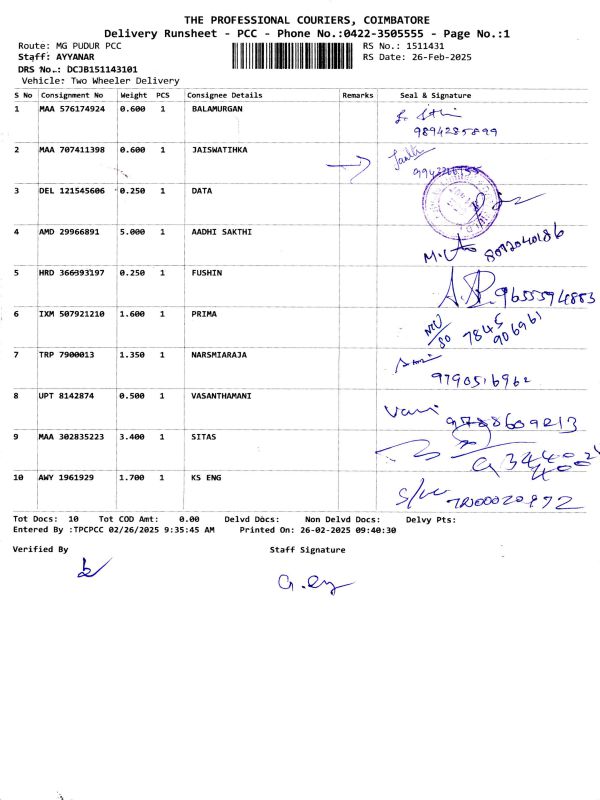 THE PROFESSIONAL COURIERS, COIMBATORE
Delivery Runsheet - PCC - Phone No.:0422-3505555 - Page No.:1
Route: MG PUDUR PCC RS No.: 1511431
Staff: AYYANAR RS Date: 26-Feb-2025
DRS No.: DCJB151143101
Vehicle: Two Wheeler Delivery
S No Consignment No Weight PCS Consignee Details Remarks Seal & Signature
1 MAA 576174924 0.600 1 BALAMURGAN
9894285899
2 MAA 707411398 0.600 1 JAISWATIHKA
3 DEL 121545606 0.250 1 DATA
4 AMD 29966891 5.000 1 AADHI SAKTHI
8092040186
5 HRD 366393197 0.250 1 FUSHIN
9655594883
6 IXM 507921210 1.600 1 PRIMA
7845
906961
7 TRP 7900013 1.350 1 NARSMIARAJA
9790516962
8 UPT 8142874 0.500 1 VASANTHAMANI
9 MAA 302835223 3.400 1 SITAS
10 AWY 1961929 1.700 1 KS ENG
Tot Docs: 10 Tot COD Amt: 0.00 Delvd Docs: Non Delvd Docs: Delvy Pts:
Entered By :TPCPCC 02/26/2025 9:35:45 AM Printed On: 26-02-2025 09:40:30
Verified By Staff Signature